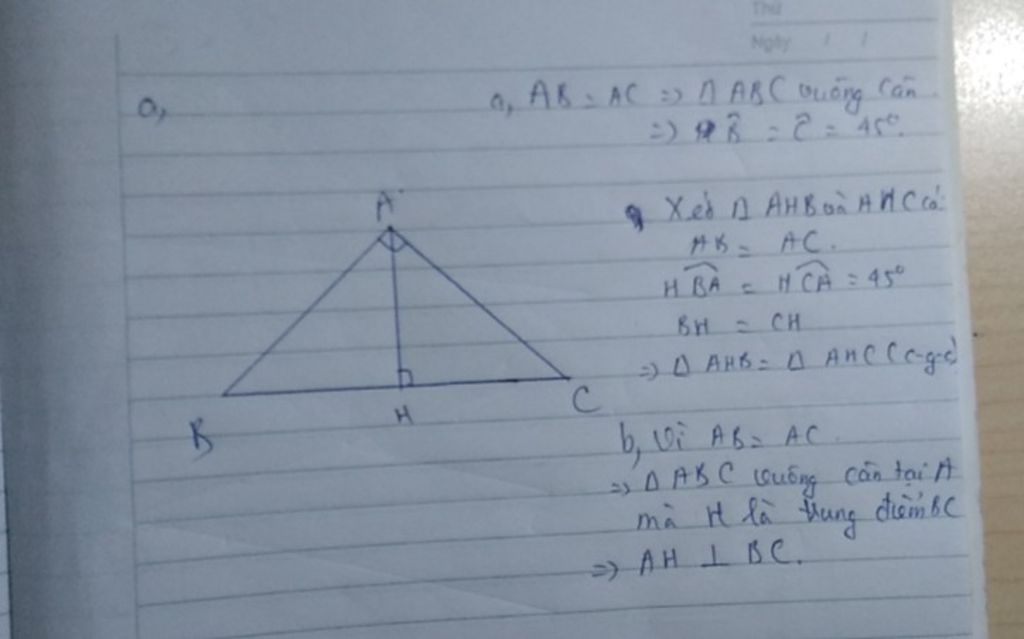 Thứ
Ngày / /
a,
a, AB = AC => Δ ABC vuông cân.
=> B̂ = Ĉ = 45°.
A
B
H
C
Xét Δ AHB và AHC có:
AB = AC.
HBA = HCA = 45°
BH = CH
=> Δ AHB = Δ AHC (c-g-c)
b, Vì AB = AC.
=> Δ ABC vuông cân tại A
mà H là trung điểm BC
=> AH ⊥ BC.